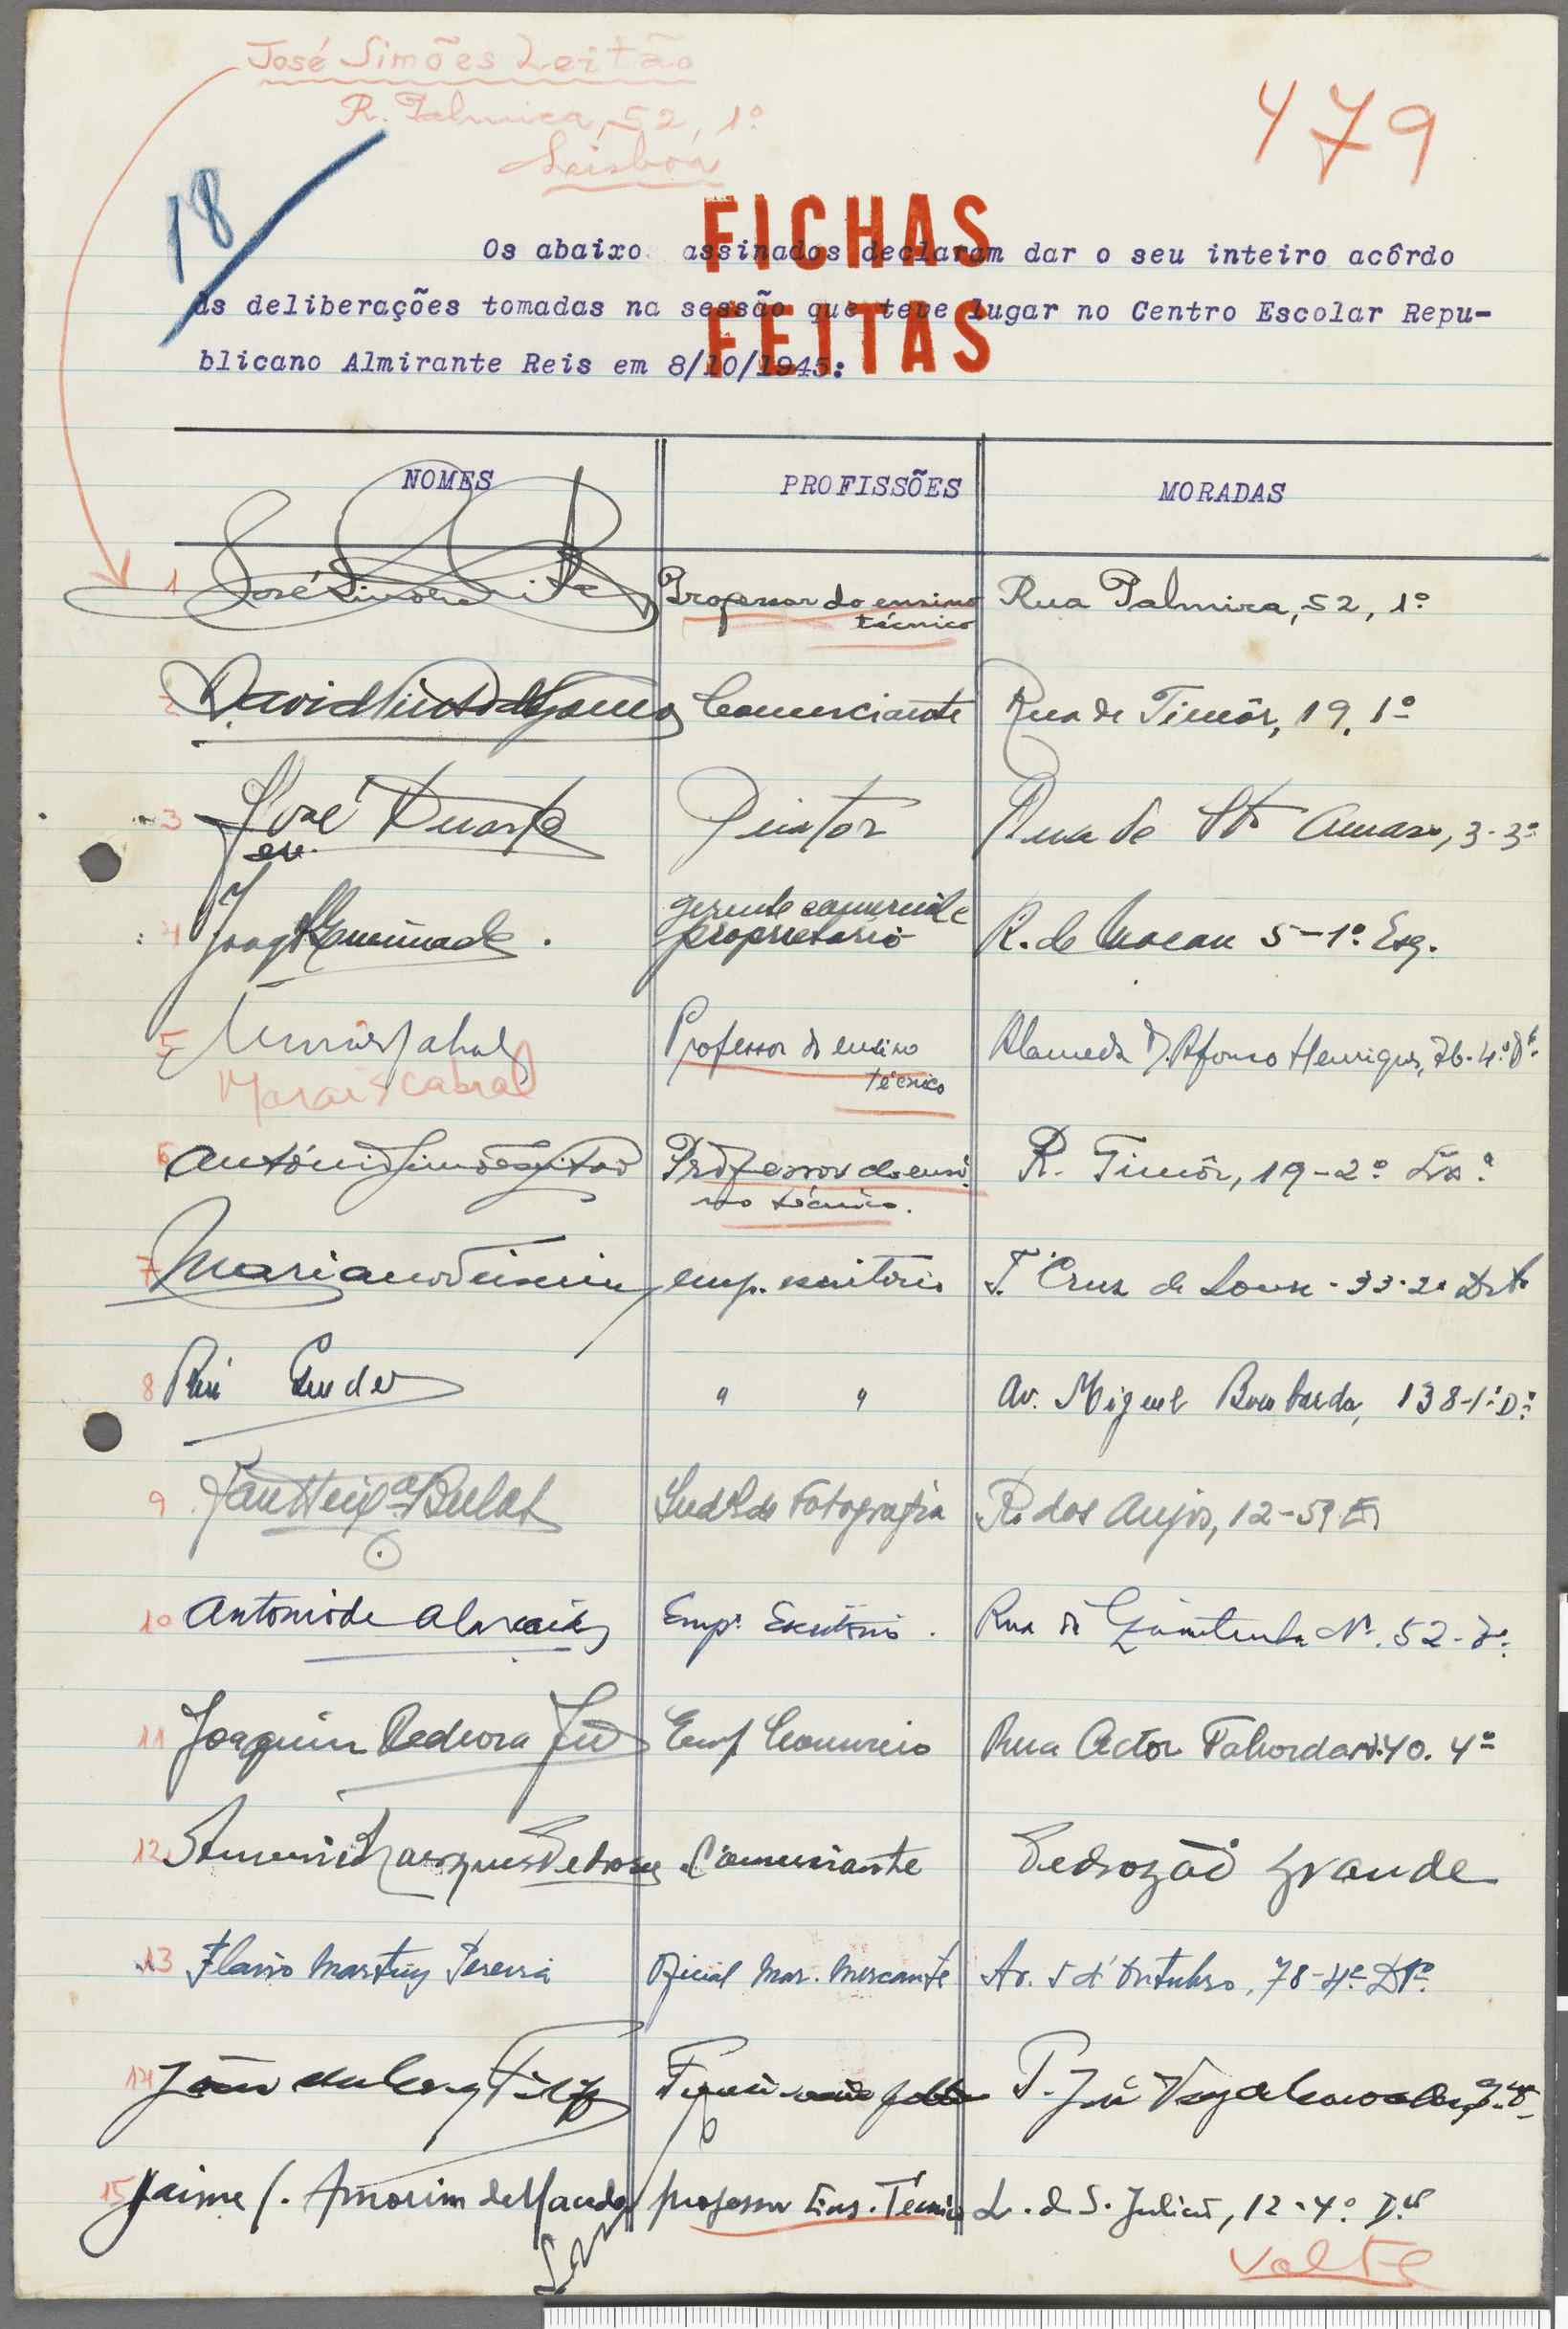 José Simões Leitão
R. Palmira, 52, 1º
Lisboa
479
18
FICHAS
FEITAS
Os abaixo assinados declaram dar o seu inteiro acôrdo
ás deliberações tomadas na sessão que teve lugar no Centro Escolar Repu-
blicano Almirante Reis em 8/10/1945:
NOMES PROFISSÕES MORADAS
1 José Simões Leitão Professor do ensino técnico Rua Palmira, 52, 1º
2 David Comerciante Rua de Timôr, 19, 1º
3 José Duarte Pintor Rua de Stº Amaro, 3-3º
4 gerente comercial e proprietario R. de Macau 5-1º Esq.
5 Morais Cabral Professor do ensino técnico Alameda D. Afonso Henriques, 76-4º Dº
Morais Cabral
6 António Simões Leitão Professor do ensino técnico. R. Timôr, 19-2º Lxª
7 Mariano Teixeira emp. escritório T. Cruz de 33-2º Drt.
8 Rui " " Av. Miguel Bombarda, 138-1º Dº
9 de Fotografia R. dos Anjos, 12-5º E
10 Antonio de Empº Escritório. Rua Nº 52-
11 Joaquim Pedrosa Emp Comercio Rua Actor Taborda nº 40. 4º
12 Marques Pedrosa Comerciante Pedrogão Grande
13 Flavio Martins Pereira Oficial Mar. Mercante Av. 5 d'Outubro, 78-4º Dtº
14 João
15 Jaime Amorim de professor Ens. Técnico L. de S. Julião, 12-4º
Volte